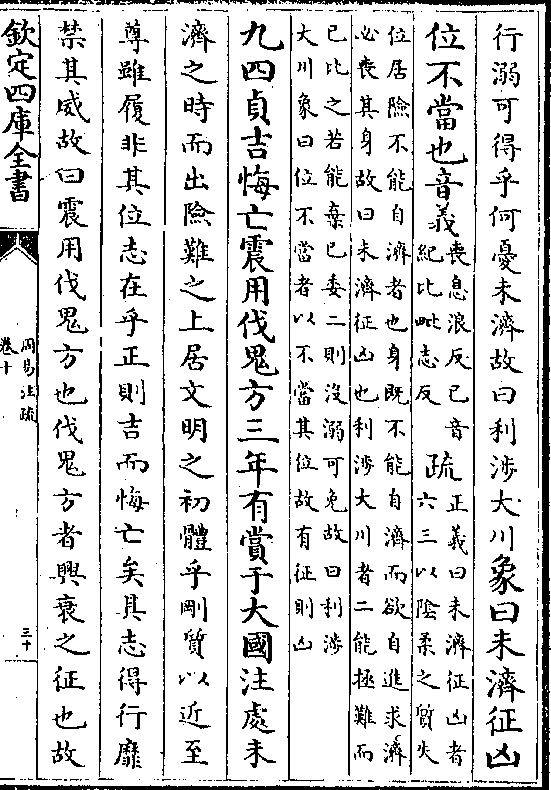 行溺可得乎何憂未濟故曰利渉大川象曰未濟征凶
位不當也音義喪息浪反已音
紀比毗志反
疏正義曰未濟征凶者
六三以陰柔之質失
位居險不能自濟者也身既不能自濟而欲自進求濟
必喪其身故曰未濟征凶也利渉大川者二能極難而
已比之若能棄已委二則没溺可免故曰利渉
大川象曰位不當者以不當其位故有征則凶
九四貞吉悔亡震用伐鬼方三年有賞于大國注處未
濟之時而出險難之上居文明之初體乎剛質以近至
尊雖履非其位志在乎正則吉而悔亡矣其志得行靡
禁其威故曰震用伐鬼方也伐鬼方者興衰之征也故
欽定四庫全書
周易注疏
卷十
三十